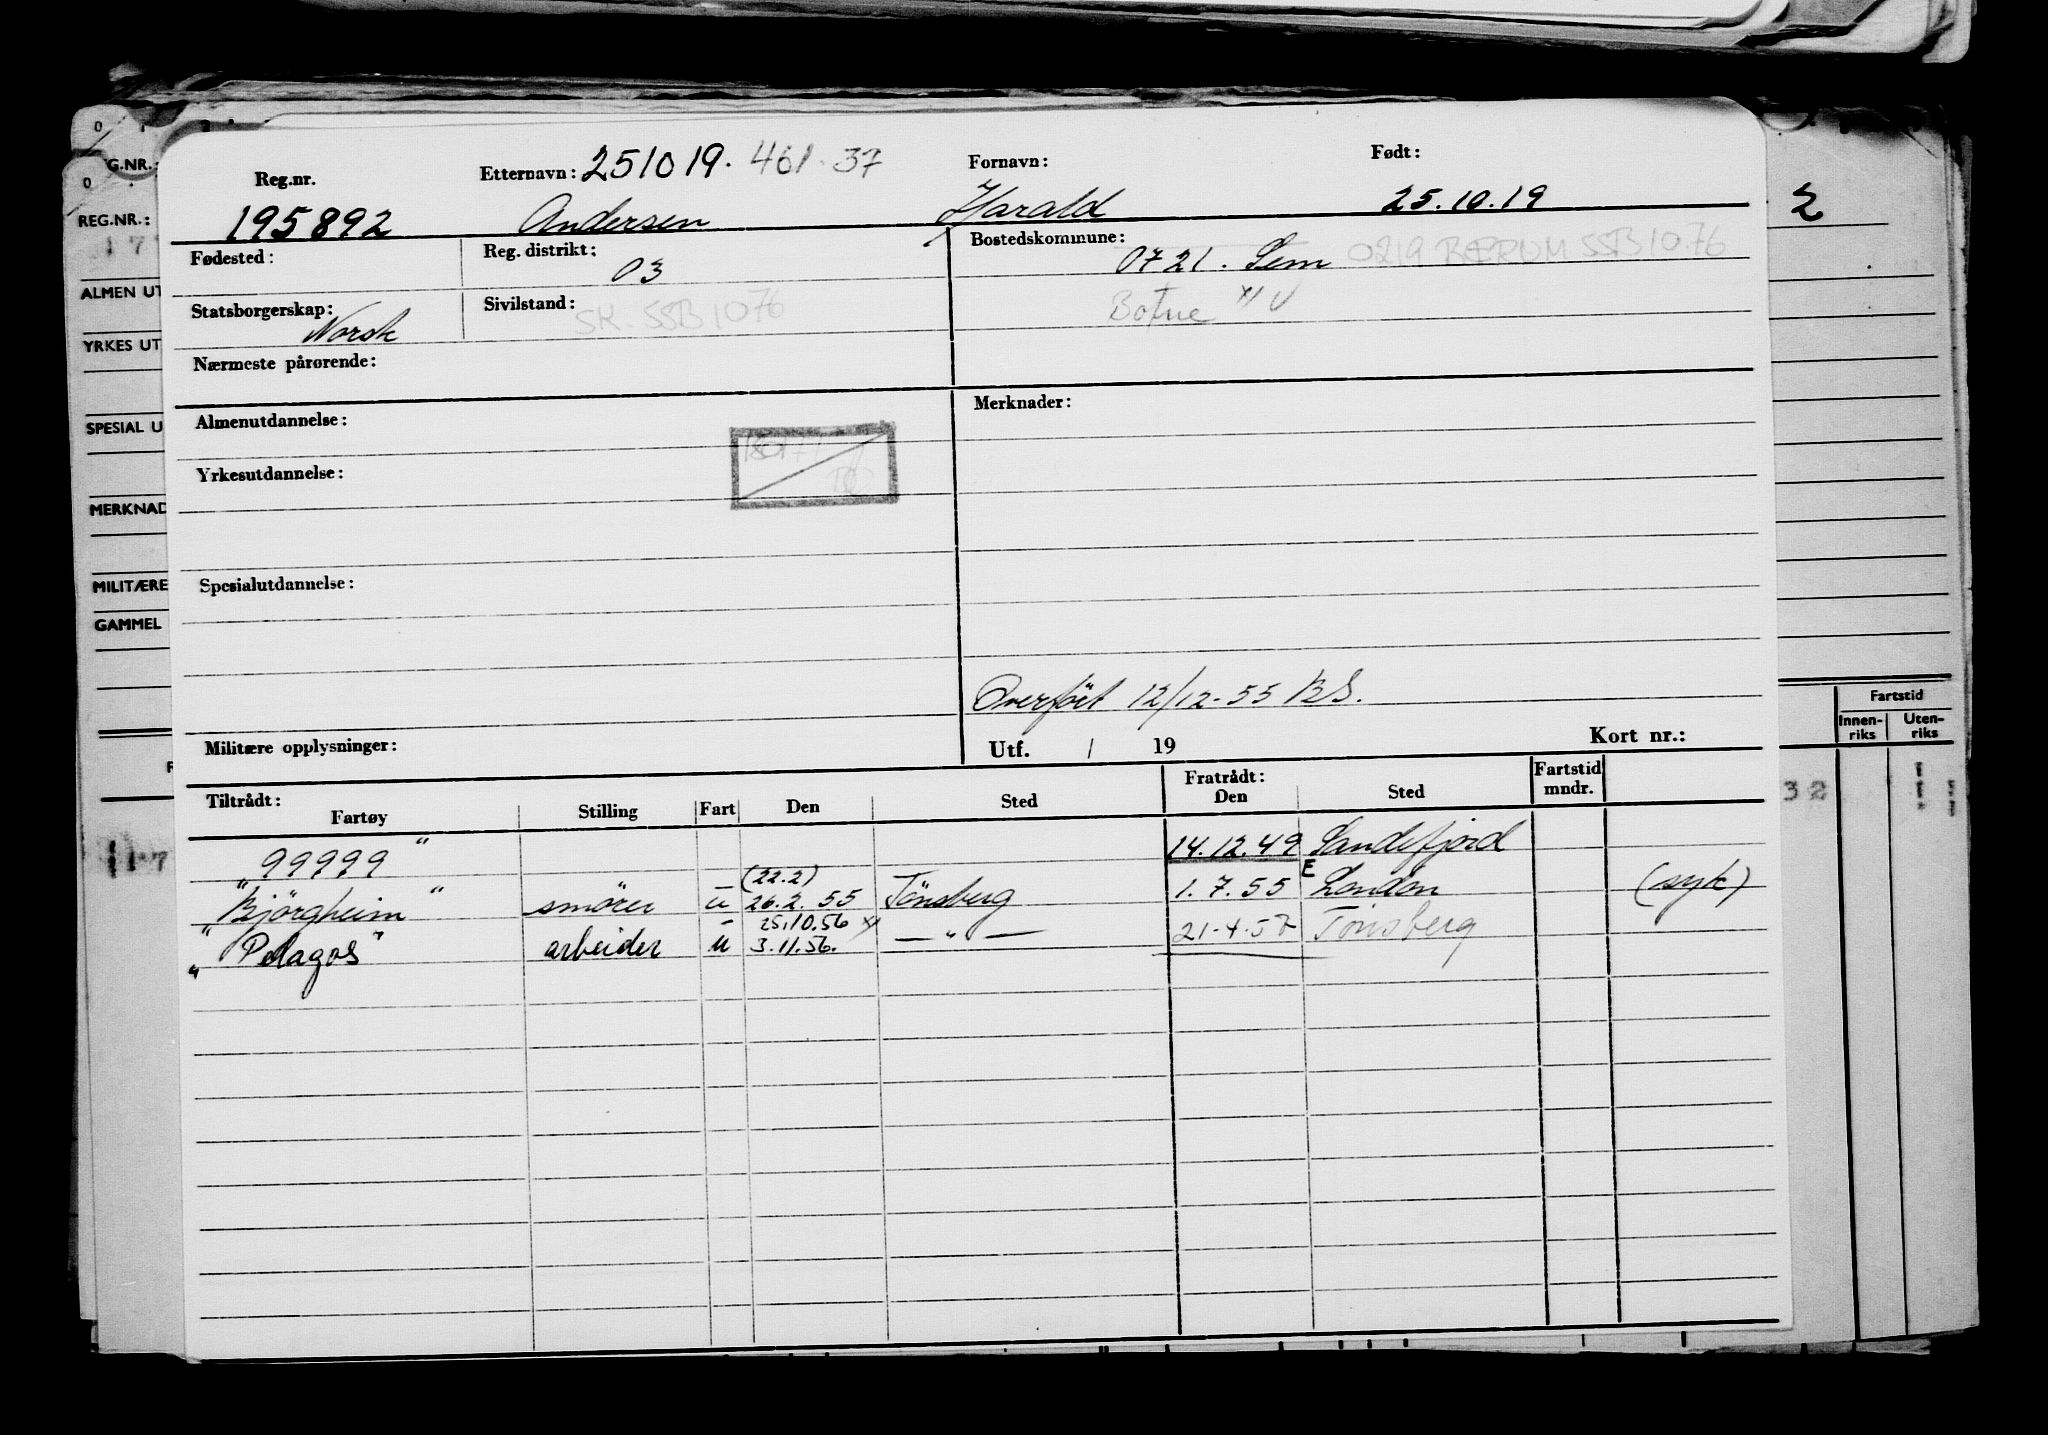 Reg.nr. Etternavn: 251019. 461.37 Fornavn: Født:
195892 Andersen Harald 25.10.19 2
Fødested: Reg. distrikt: 03 Bostedskommune: 0721. Sem 0219 BÆRUM SSB 10 76
Statsborgerskap: Norsk Sivilstand: SK. SSB 10 76 Botne
Nærmeste pårørende:
Almenutdannelse: Merknader:
Yrkesutdannelse:
Spesialutdannelse:
Overført 12/12-55 BS.
Militære opplysninger: Utf. / 19 Kort nr.:
Tiltrådt: Fratrådt: Fartstid
Fartøy Stilling Fart Den Sted Den Sted mndr.
"99999" 14.12.49 Sandefjord
(22.2) E
"Bjørgheim" smører u 26.2.55 Tönsberg 1.7.55 London (syk)
25.10.56
"Pelagos" arbeider u 3.11.56. — " — 21-4-57 Tönsberg
G.NR.:
REG.NR.:
ALMEN UT
YRKES UT
SPESIAL U
MERKNAD
MILITÆRE
GAMMEL
Fartstid
Innen-riks Uten-riks
32